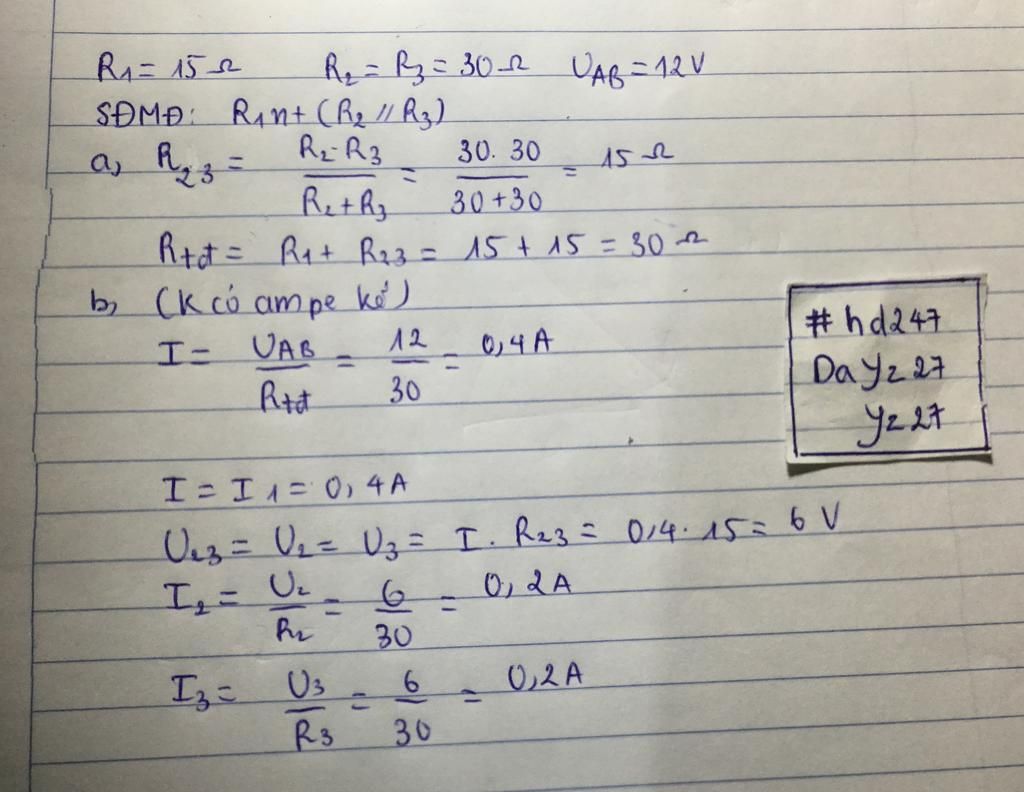 R1 = 15 Ω R2 = R3 = 30 Ω UAB = 12 V
SĐMĐ: R1 nt (R2 // R3)
a, R23 = R2 . R3 / R2 + R3 = 30. 30 / 30 + 30 = 15 Ω
Rtđ = R1 + R23 = 15 + 15 = 30 Ω
b, (K có ampe kế)
I = UAB / Rtđ = 12 / 30 = 0,4 A
# hd247
Da Yz 27
Yz 27
I = I1 = 0,4 A
U23 = U2 = U3 = I . R23 = 0,4 . 15 = 6 V
I2 = U2 / R2 = 6 / 30 = 0,2 A
I3 = U3 / R3 = 6 / 30 = 0,2 A